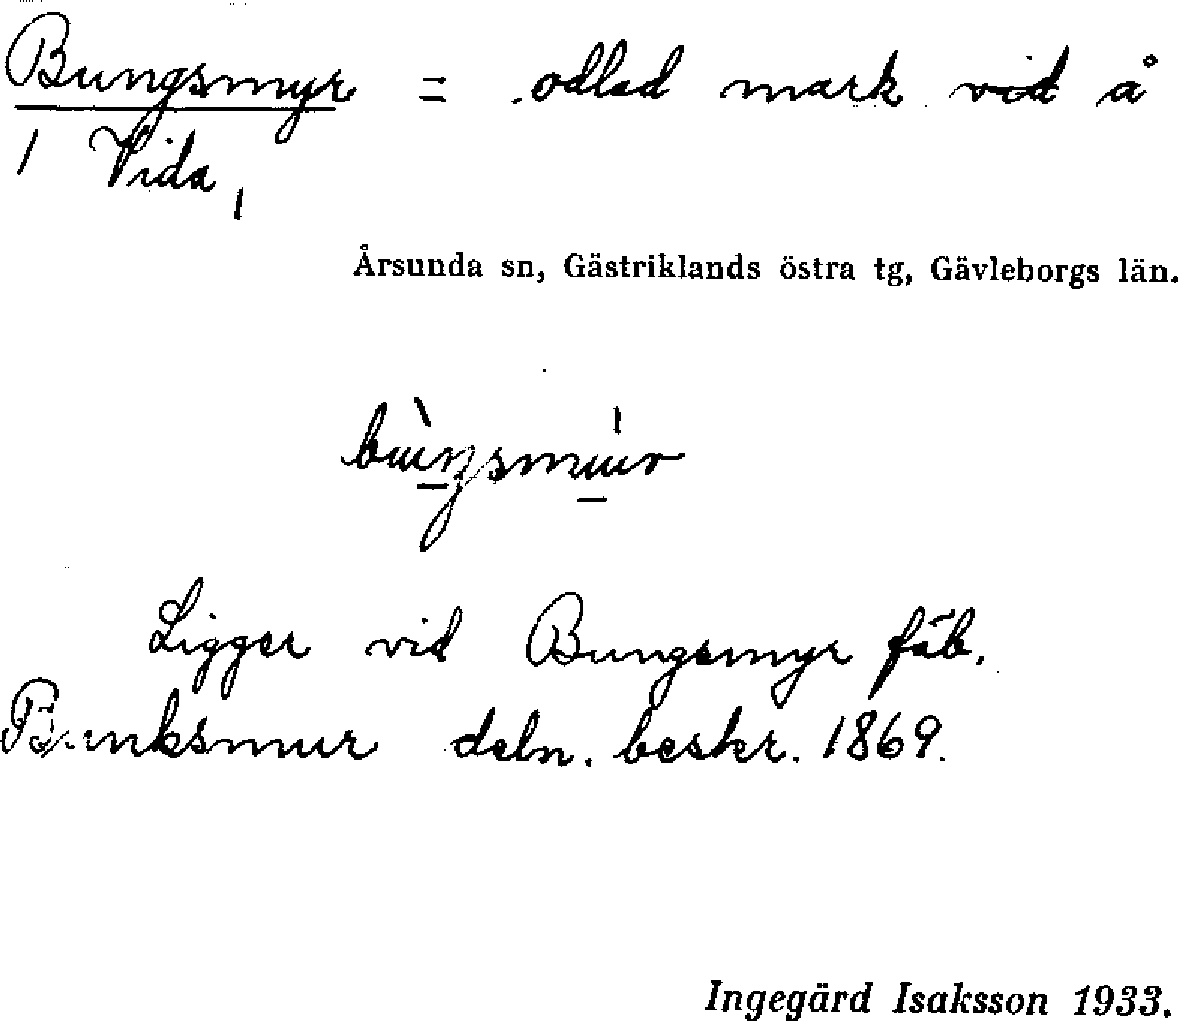 Bungsmyr = odlad mark vid å
/ Vida,
Årsunda sn, Gästriklands östra tg, Gävleborgs län.
Ligger vid Bungsmyr fäb.
Bunksmur deln. beskr. 1869.
Ingegärd Isaksson 1933.